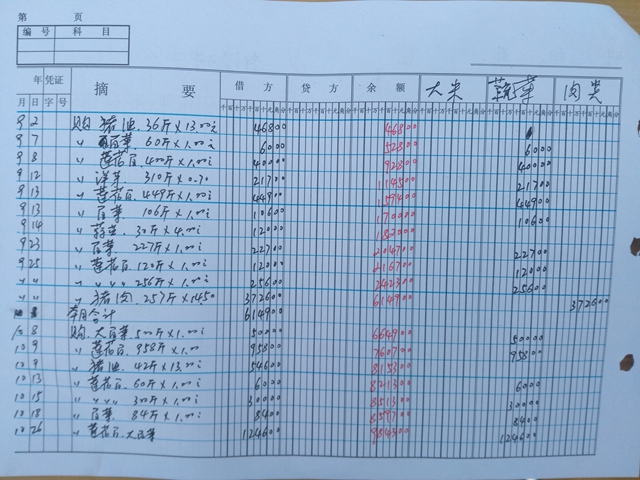 第 页
编号 科目
年 凭证 摘要 借方 贷方 余额 大米 蔬菜 肉类
月 日 字 号 千百十万千百十元角分 千百十万千百十元角分 千百十万千百十元角分
9 2 购 猪油 36斤×13.00 46800 46800
9 7 〃 白菜 60斤×1.00 6000 52800 6000
9 8 〃 莲花白 400斤×1.00 40000 92800 40000
9 12 〃 洋芋 310斤×0.70 21700 114500 21700
9 13 〃 莲花白 449斤×1.00 44900 159400 44900
9 13 〃 白菜 106斤×1.00 10600 170000 10600
9 14 〃 蒜苗 30斤×4.00 12000 182000
9 23 〃 白菜 227斤×1.00 22700 204700 22700
9 25 〃 莲花白 120斤×1.00 12000 216700 12000
〃 〃 〃 〃 〃 256斤×1.00 25600 242300 25600
〃 〃 〃 猪肉 257斤×1450 372600 614900 372600
本月合计 614900
10 8 购 大白菜 500斤×1.00 50000 664900 50000
10 9 〃 莲花白 958斤×1.00 95800 760700 95800
10 9 〃 猪油 42斤×13.00 54600 815300
10 13 〃 莲花白 60斤×1.00 6000 821300 6000
10 15 〃 〃 〃 300斤×1.00 30000 851300 30000
10 18 〃 白菜 84斤×1.00 8400 859700 8400
10 26 〃 莲花白 大白菜 124600 984300 124600